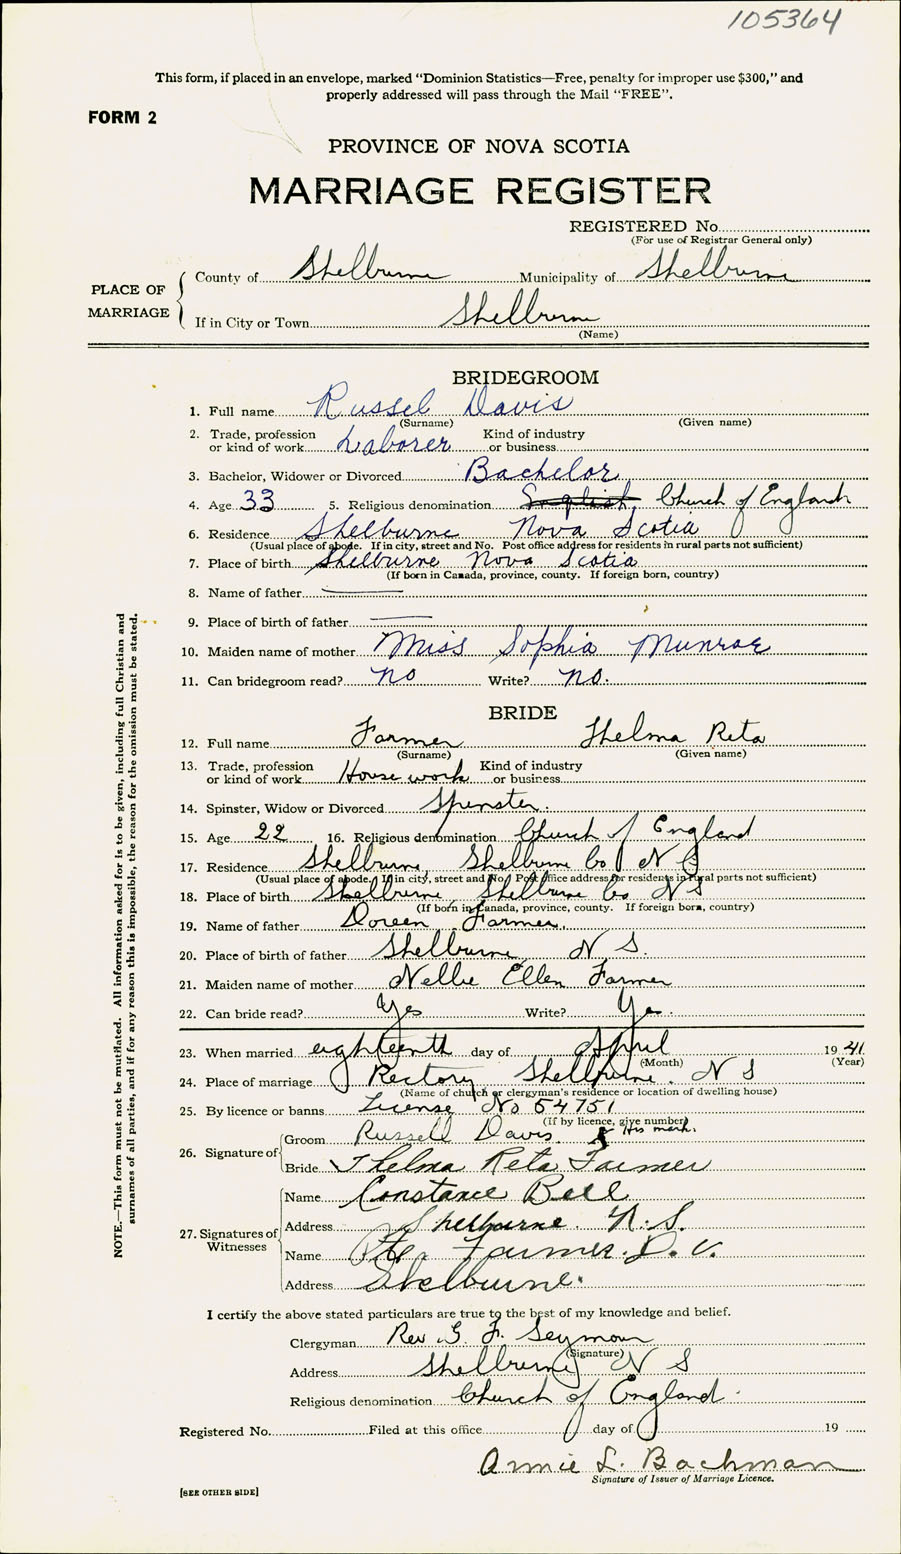 105364
This form, if placed in an envelope, marked "Dominion Statistics—Free, penalty for improper use $300," and
properly addressed will pass through the Mail "FREE".
FORM 2
PROVINCE OF NOVA SCOTIA
MARRIAGE REGISTER
REGISTERED No.
(For use of Registrar General only)
PLACE OF MARRIAGE
County of Shelburne Municipality of Shelburne
If in City or Town Shelburne
(Name)
BRIDEGROOM
1. Full name Russel Davis
(Surname) (Given name)
2. Trade, profession or kind of work Laborer Kind of industry or business
3. Bachelor, Widower or Divorced Bachelor
4. Age 33 5. Religious denomination English Church of England
6. Residence Shelburne Nova Scotia
(Usual place of abode. If in city, street and No. Post office address for residents in rural parts not sufficient)
7. Place of birth Shelburne Nova Scotia
(If born in Canada, province, county. If foreign born, country)
8. Name of father —
9. Place of birth of father —
10. Maiden name of mother Miss Sophia Munroe
11. Can bridegroom read? no Write? no.
BRIDE
12. Full name Farmer Thelma Reta
(Surname) (Given name)
13. Trade, profession or kind of work House work Kind of industry or business
14. Spinster, Widow or Divorced Spinster.
15. Age 22 16. Religious denomination Church of England
17. Residence Shelburne, Shelburne Co N S
(Usual place of abode. If in city, street and No. Post office address for residents in rural parts not sufficient)
18. Place of birth Shelburne, Shelburne Co N S
(If born in Canada, province, county. If foreign born, country)
19. Name of father Doreen Farmer.
20. Place of birth of father Shelburne, N S.
21. Maiden name of mother Nellie Ellen Farmer
22. Can bride read? Yes Write? Yes.
23. When married eighteenth day of April 1941
(Month) (Year)
24. Place of marriage Rectory Shelburne. N S
(Name of church or clergyman's residence or location of dwelling house)
25. By licence or banns License No 54751
(If by licence, give number)
26. Signature of
Groom Russell Davis. X His mark.
Bride Thelma Reta Farmer
27. Signatures of Witnesses
Name Constance Bell
Address Shelburne. N.S.
Name Farmer. D. V.
Address Shelburne.
I certify the above stated particulars are true to the best of my knowledge and belief.
Clergyman Rev G. F. Seymour
(Signature)
Address Shelburne N S
Religious denomination Church of England.
Registered No. Filed at this office day of 19
Annie L. Bachman
Signature of Issuer of Marriage Licence.
[SEE OTHER SIDE]
NOTE.—This form must not be mutilated. All information asked for is to be given, including full Christian and
surnames of all parties, and if for any reason this is impossible, the reason for the omission must be stated.